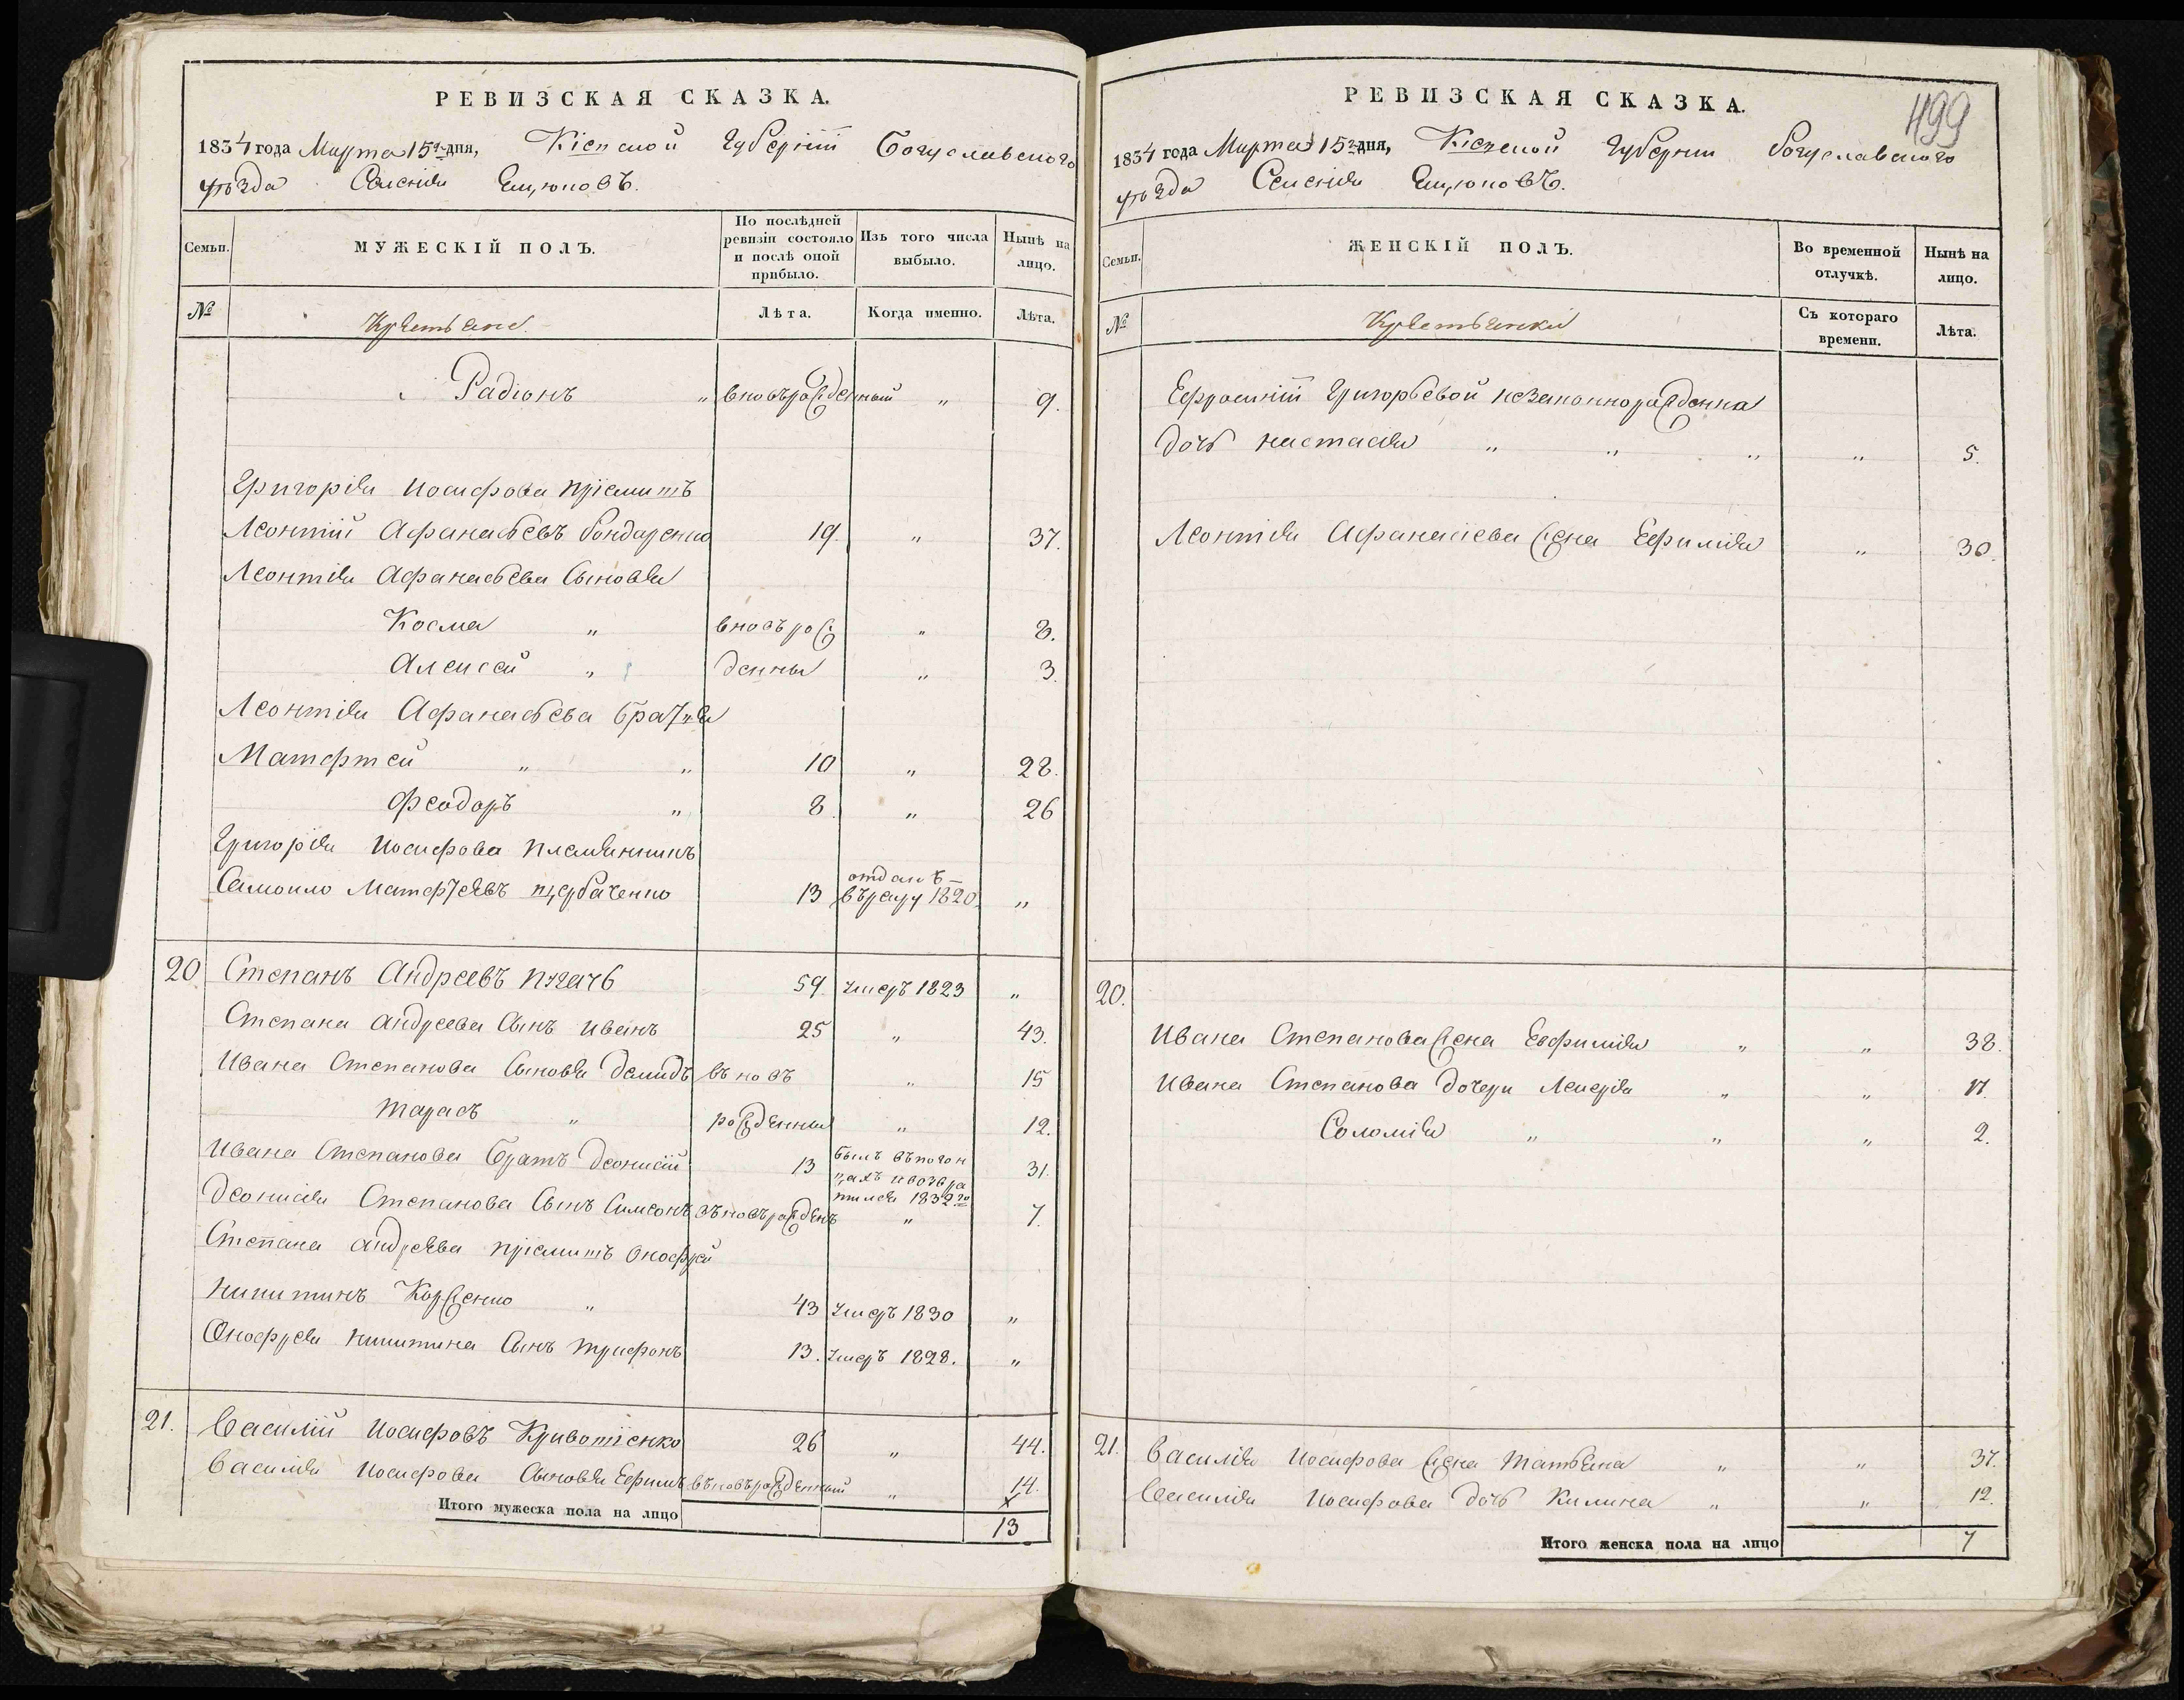 РЕВИЗСКАЯ СКАЗКА.
1834 года Марта 15го дня, Кіевской Губерніи Богуславскаго
уѣзда Селенія Емцюповъ.
Семьи.
МУЖЕСКІЙ ПОЛЪ.
По послѣдней ревизіи состояло и послѣ оной прибыло.
Изъ того числа выбыло.
Нынѣ на лицо.
№
Крестьяне.
Лѣта.
Когда именно.
Лѣта.
Радіонъ " вновърожденный " 9.
Григорія Иосифова пріемитъ
Леонтій Афанасьевъ бондаренко 19. " 37.
Леонтія Афанасьева Сыновья
Косма " вновърож " 8.
Алексей " денны " 3
Леонтія Афанасьева братья
Матфтей " " 10 " 28.
Феодоръ " 8. " 26
Григорія Иосифова племянникъ
Самоило Матфѣевъ щербаченко 13 отданъ
въ рекру 1820. "
20. Степанъ Андреевъ 59. умеръ 1823 "
Степана андреева Сынъ иванъ 25 " 43.
Ивана Степанова Сыновья Демидъ вновъ " 15
тарасъ " рожденны " 12.
Ивана Степанова Братъ Деонисій 13 былъ въ погон
цахъ и возвра
тился 1832го 31.
Деонисія Степанова Сынъ Симеонъ въновърожденъ " 7.
Степана андреева пріемитъ Онофрей
никитинъ Корженко " 43 умеръ 1830 "
Онофрея никитина Сынъ трифонъ 13. умеръ 1828. "
21. Василій Иосифовъ Кривошіенко 26 " 44.
Василія Иосифова Сыновья Ефимъ въновърожденный " 14.
Итого мужеска пола на лицо 13
499
РЕВИЗСКАЯ СКАЗКА.
1834 года Марта 15го дня, Кіевской Губерніи Богуславскаго
уѣзда Селенія Емцюповъ.
Семьи.
ЖЕНСКІЙ ПОЛЪ.
Во временной отлучкѣ.
Нынѣ на лицо.
№
Крестьянки
Съ котораго времени.
Лѣта.
Ефросиніи Григорьевой незаконнорожденна
дочь настасія " " " " 5.
Леонтія Афанасіева жена Ефимія " 30.
20.
Ивана Степанова жена Евфимія " " 38.
Ивана Степанова дочери " " 17.
Соломія " " " 2.
21. Василія Иосифова жена татьяна " " 37.
Василія Иосифова дочь Килина " " 12.
Итого женска пола на лицо 7